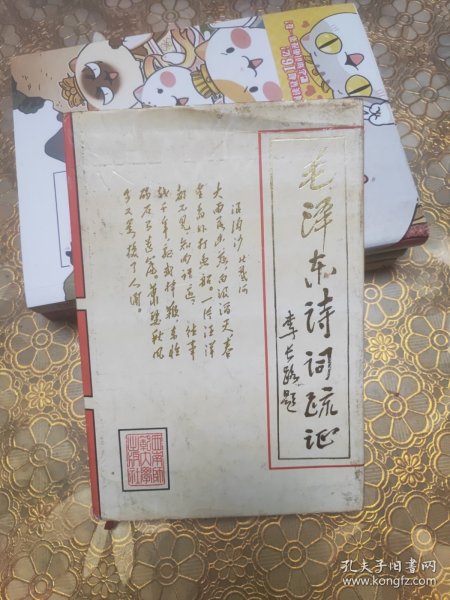 毛泽东诗词疏证
李长路题
浪淘沙 北戴河
大雨落幽燕 白浪滔天 秦
皇岛外打鱼船 一片汪洋
都不见 知向谁边 往事
越千年 魏武挥鞭 东临
碣石有遗篇 萧瑟秋风
今又是 换了人间。
西南師
範大學
出版社
孔夫子旧书网
www.kongfz.com